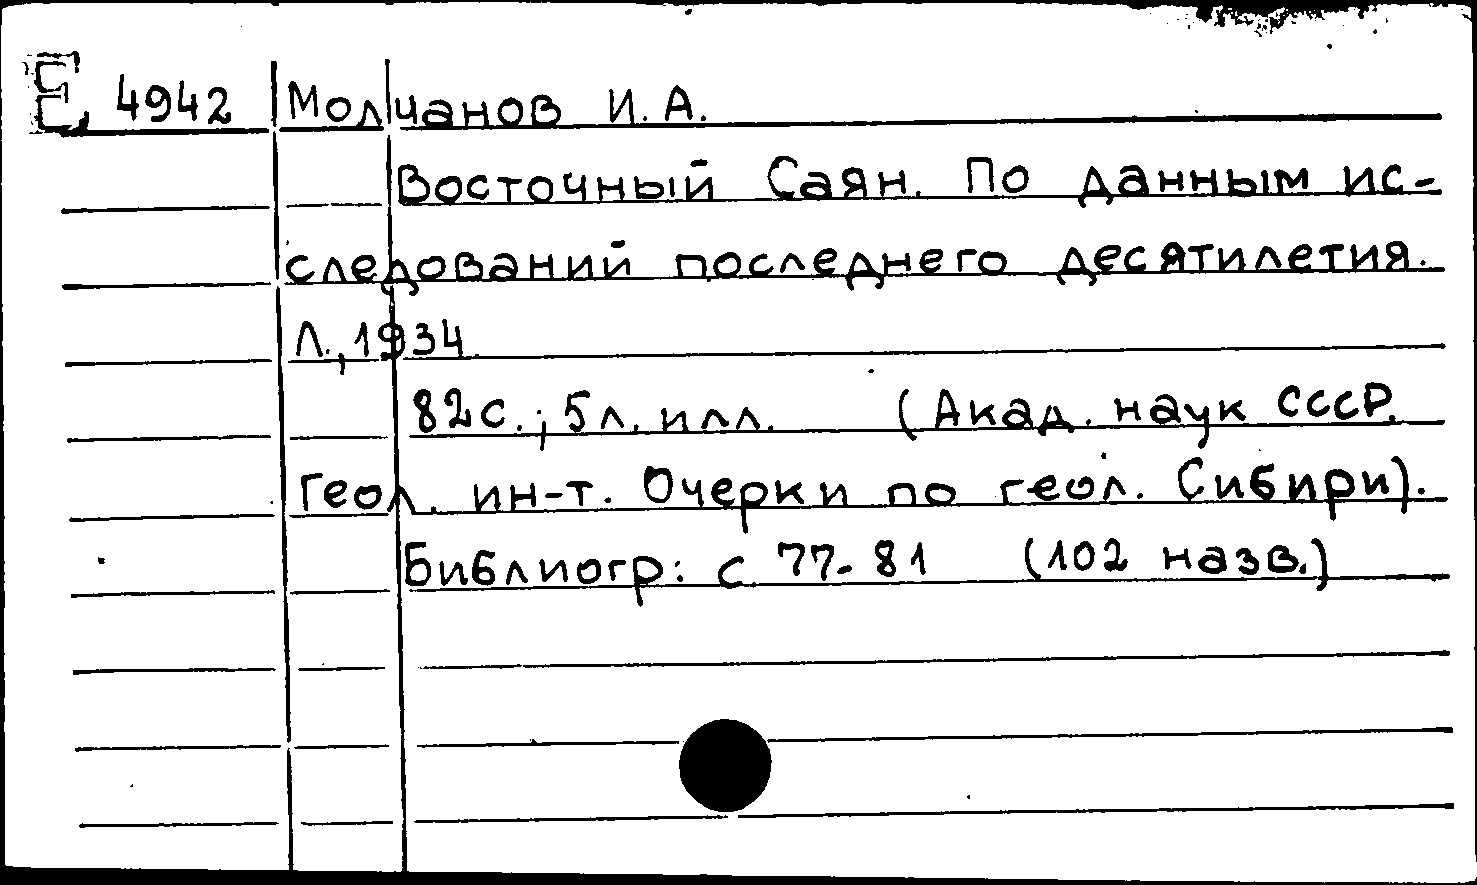 Е 4942 Молчанов И. А.
Восточный Саян. По данным ис-
следований последнего десятилетия.
Л., 1934
82с.; 5л. илл. (Акад. наук СССР.
Геол. ин-т. Очерки по геол. Сибири).
Библиогр: с. 77-81 (102 назв.)